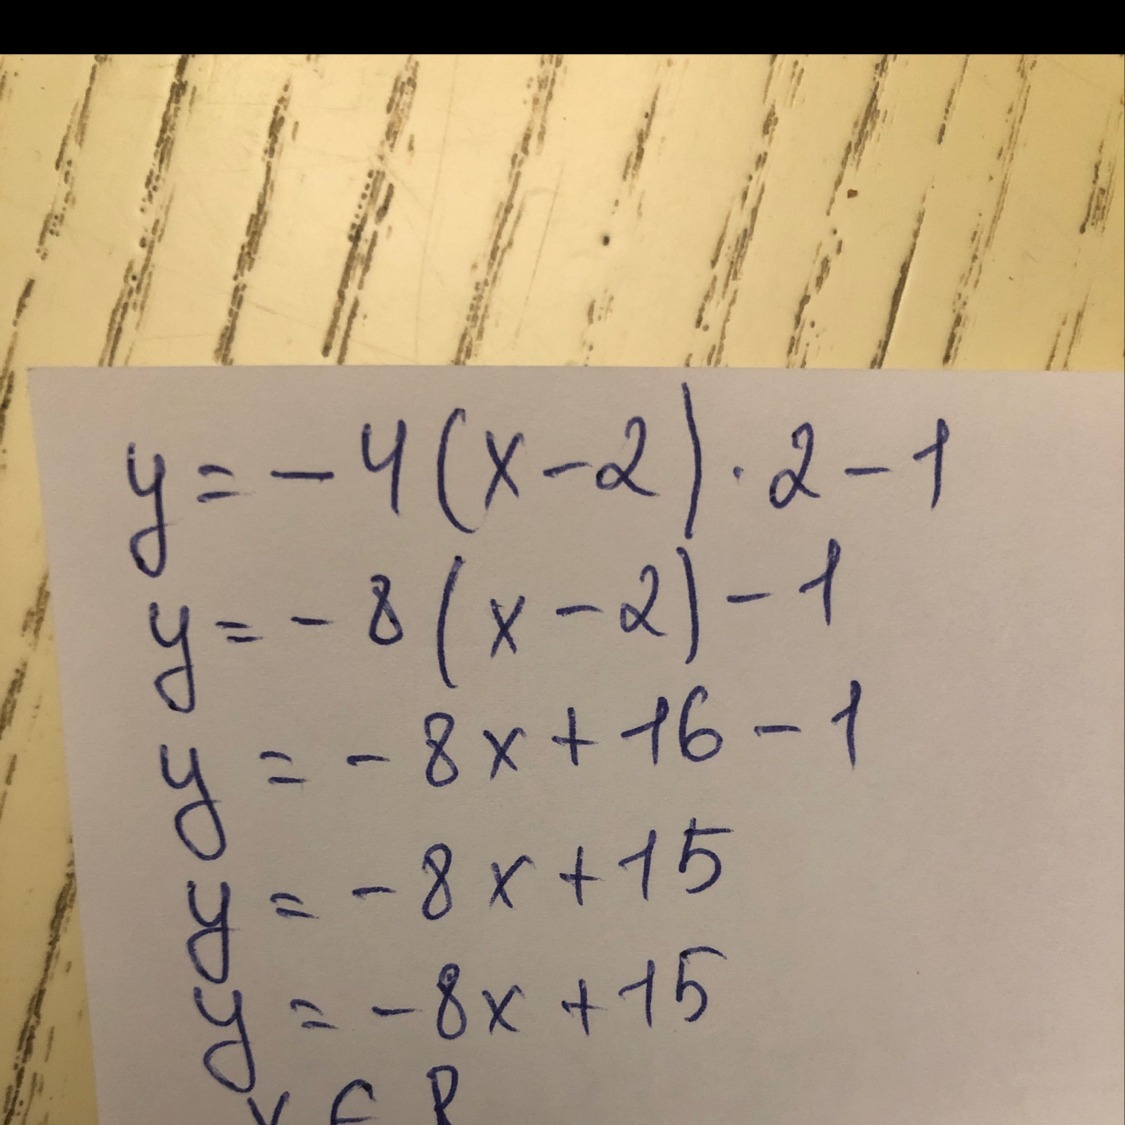 y = - 4 (x - 2) · 2 - 1
y = - 8 (x - 2) - 1
y = - 8x + 16 - 1
y = - 8x + 15
y = - 8x + 15
x ∈ R